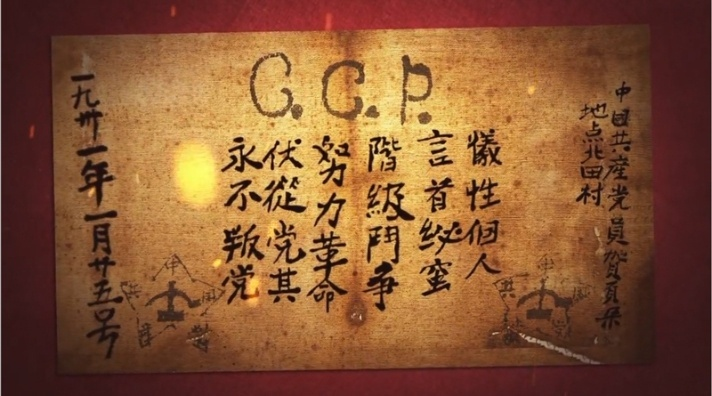 C.C.P.
中國共產党員賀頁朵
地点北田村
犧性個人
言首秘蜜
階級鬥争
努力革命
伏從党其
永不叛党
一九卅一年一月廿五号